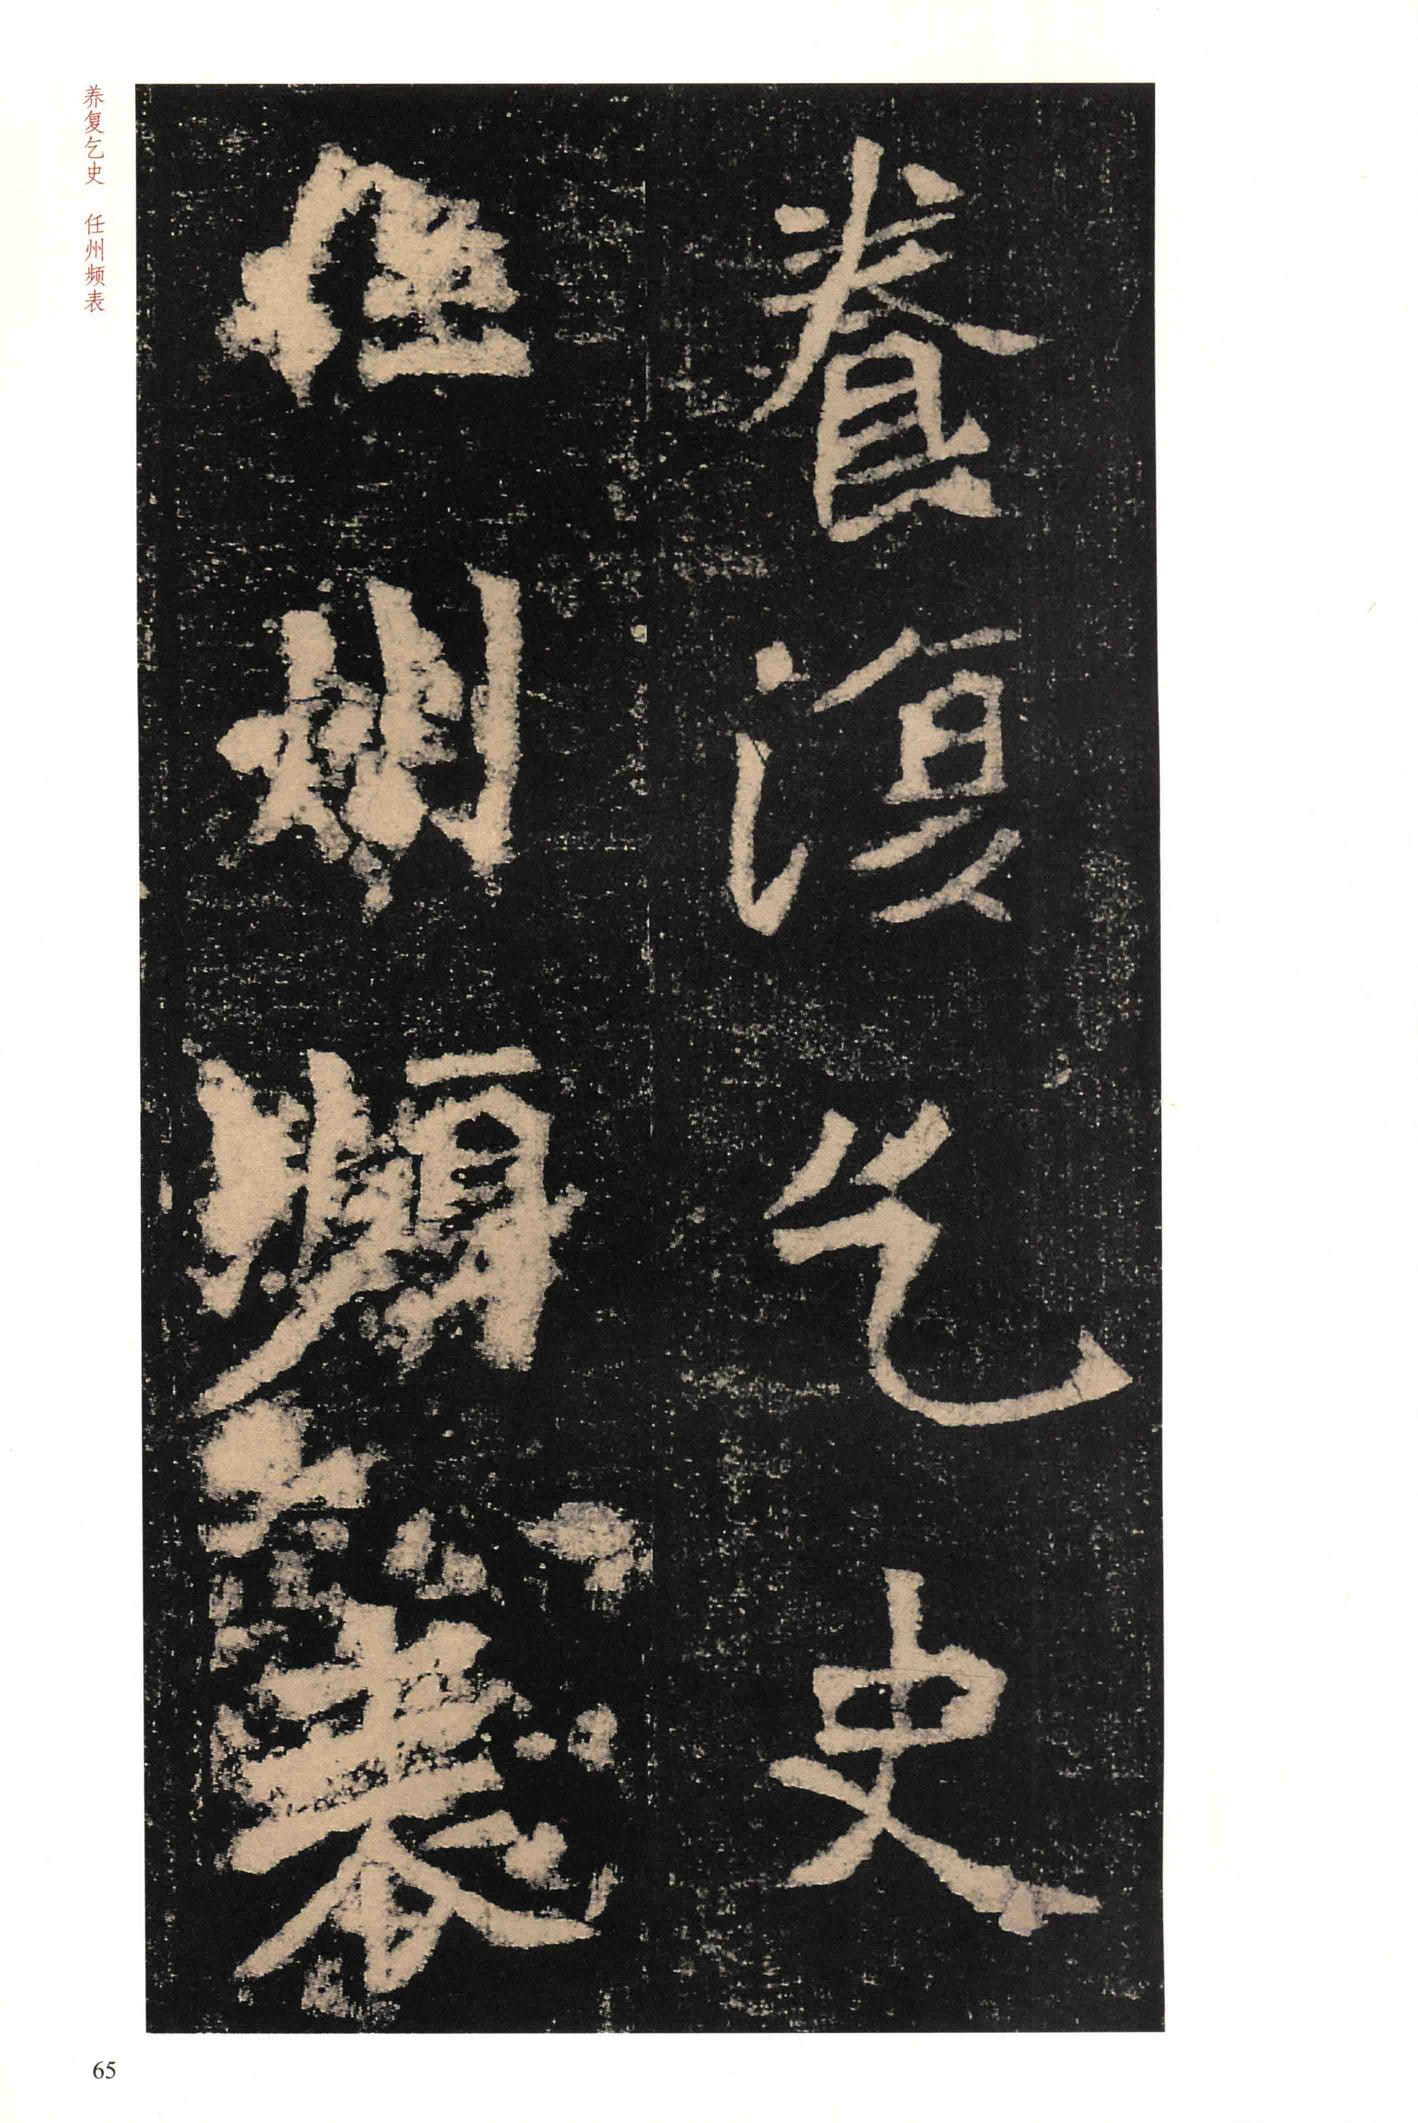 養復乞史
任州頻表
养复乞史 任州频表
65